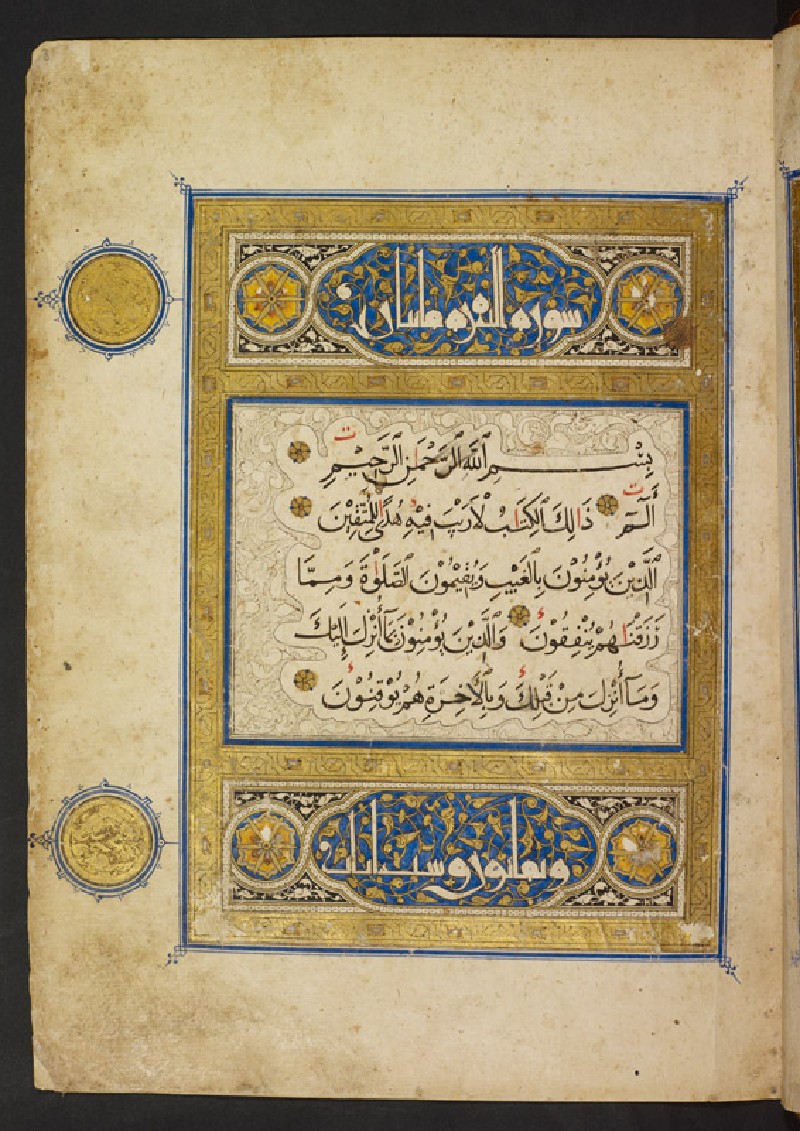 سورة البقرة مايتان
بِسْمِ ٱللَّهِ ٱلرَّحْمَٰنِ ٱلرَّحِيمِ
الٓمٓ ذَٰلِكَ ٱلْكِتَابُ لَا رَيْبَ فِيهِ هُدًى لِلْمُتَّقِينَ
ٱلَّذِينَ يُؤْمِنُونَ بِٱلْغَيْبِ وَيُقِيمُونَ ٱلصَّلَوٰةَ وَمِمَّا
رَزَقْنَاهُمْ يُنْفِقُونَ وَٱلَّذِينَ يُؤْمِنُونَ بِمَآ أُنْزِلَ إِلَيْكَ
وَمَآ أُنْزِلَ مِنْ قَبْلِكَ وَبِٱلْآخِرَةِ هُمْ يُوقِنُونَ
وثمانون وست ايات